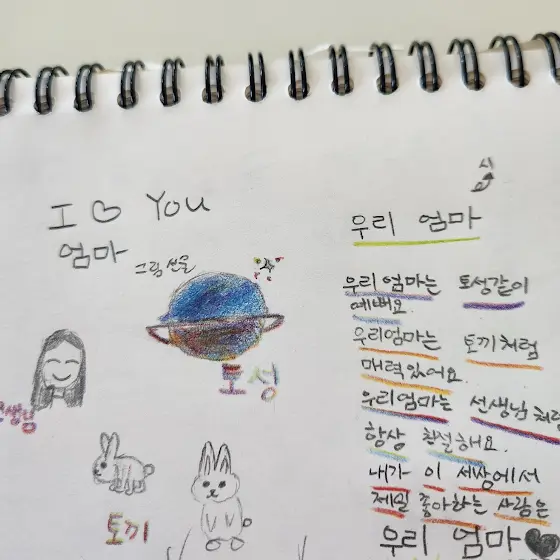 I ♡ You
엄마
그림 선물
토성
선생님
토끼
시
우리 엄마
우리 엄마는 토성같이
예뻐요.
우리엄마는 토끼처럼
매력있어요.
우리엄마는 선생님처럼
항상 친절해요.
내가 이 세상에서
제일 좋아하는 사람은
우리 엄마♥